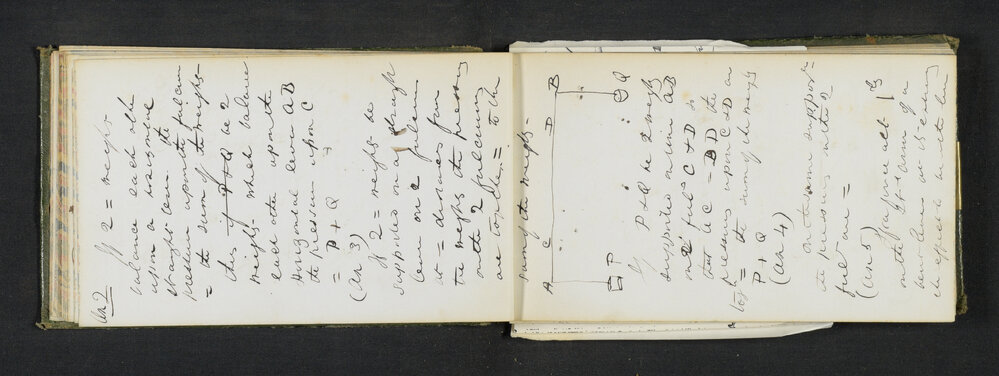 Ax 2 If 2 = weights
balance each other
upon a horizontal
straight lever the
pressure upon the fulcrum
= the sum of the weights
this if P + Q be 2
weights which balance
each other upon the
Horizontal lever AB
the pressure upon C
= P + Q
(Ax 3)
If 2 = weights be
supported on a straight
lever on 2 fulcrum
at = distances from
the weights the pressures
on the 2 fulcrums
are together = to the
sum of the weights
A C D B
P Q
If P + Q be 2 weights
supported on a line AB
on 2 fulcs C + D so
that AC = BD the
pressures upon C + D are
togr = the sum of the weights
P + Q
(Ax 4)
On the same supposn
the pressures on the 2
fulcs are =
(Ax 5)
If a force act
on the arm of a
bent lever at its extremity
the effect is